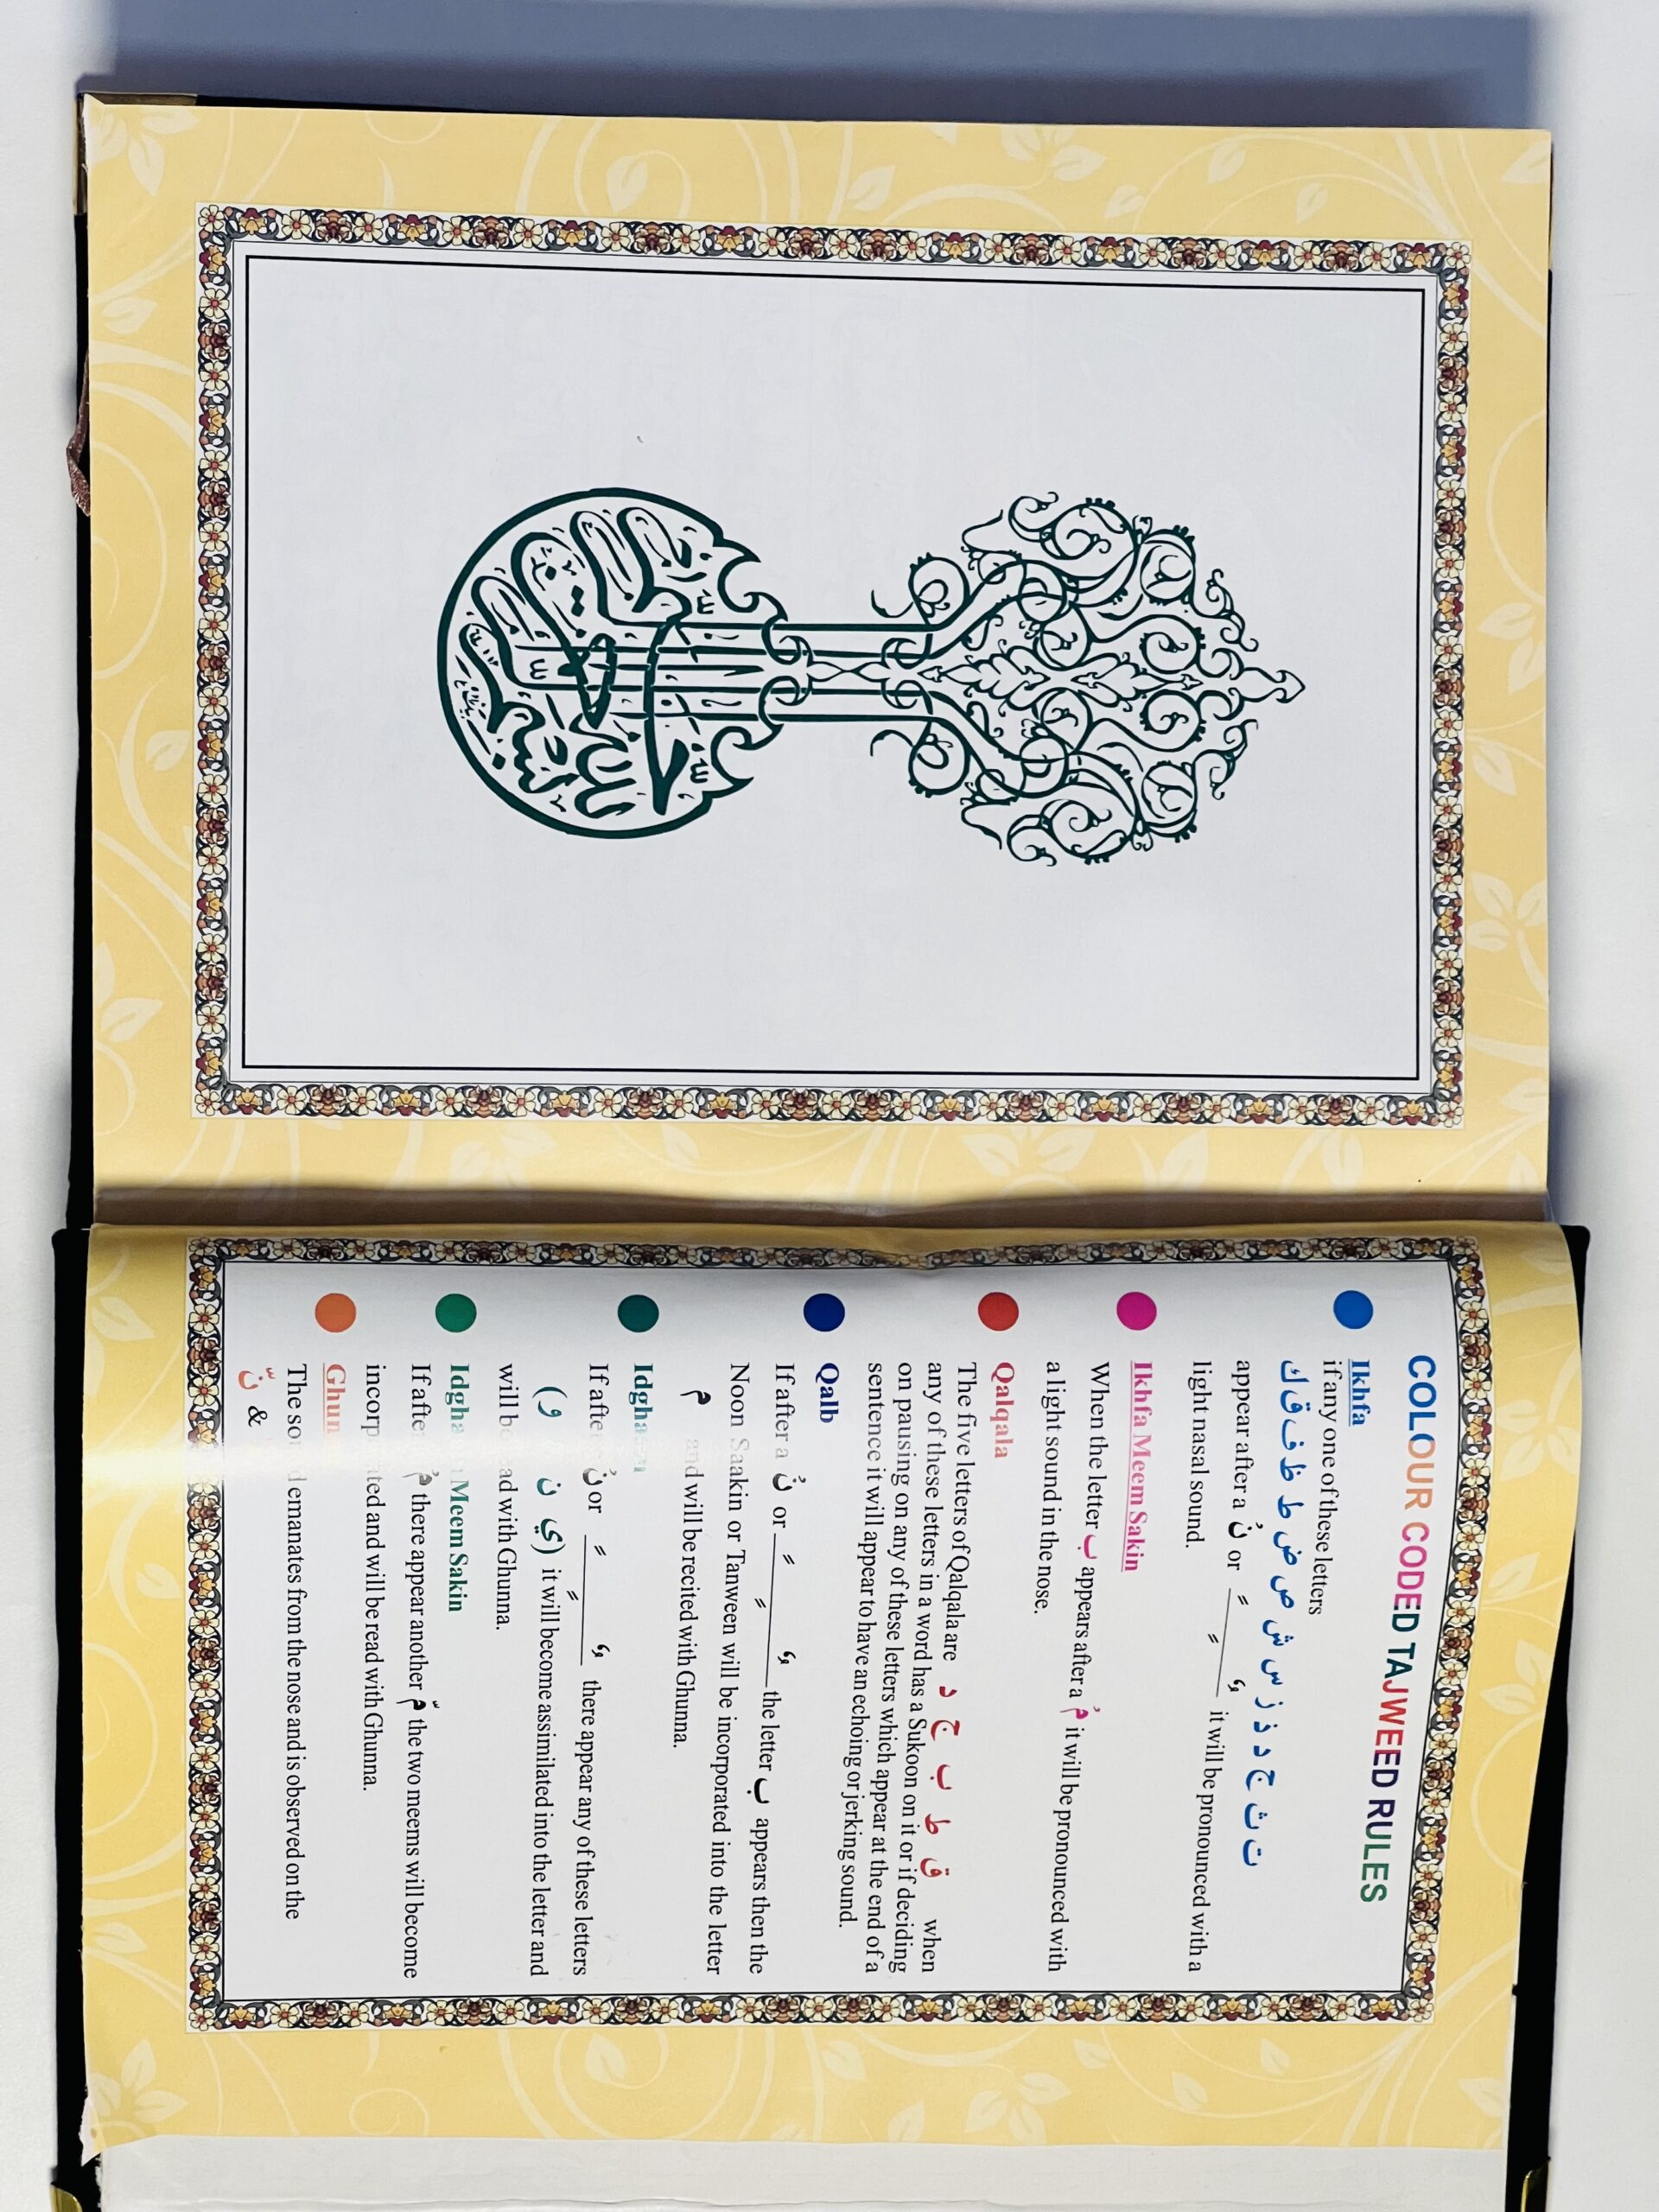 COLOUR CODED TAJWEED RULES
Ikhfa
if any one of these letters
ت ث ج د ذ ز س ش ص ض ط ظ ف ق ك
appear after a نْ or ــًــٍــٌ it will be pronounced with a
light nasal sound.
Ikhfa Meem Sakin
When the letter ب appears after a مْ it will be pronounced with
a light sound in the nose.
Qalqala
The five letters of Qalqala are د ج ب ط ق when
any of these letters in a word has a Sukoon on it or if deciding
on pausing on any of these letters which appear at the end of a
sentence it will appear to have an echoing or jerking sound.
Qalb
If after a نْ or ــًــٍــٌ the letter ب appears then the
Noon Saakin or Tanween will be incorporated into the letter
م and will be recited with Ghunna.
If after نْ or ــًــٍــٌ there appear any of these letters
(ي ن و) it will become assimilated into the letter and
will be with Ghunna.
Meem Sakin
If after مْ there appear another مّ the two meems will become
and will be read with Ghunna.
The emanates from the nose and is observed on the
نّ &